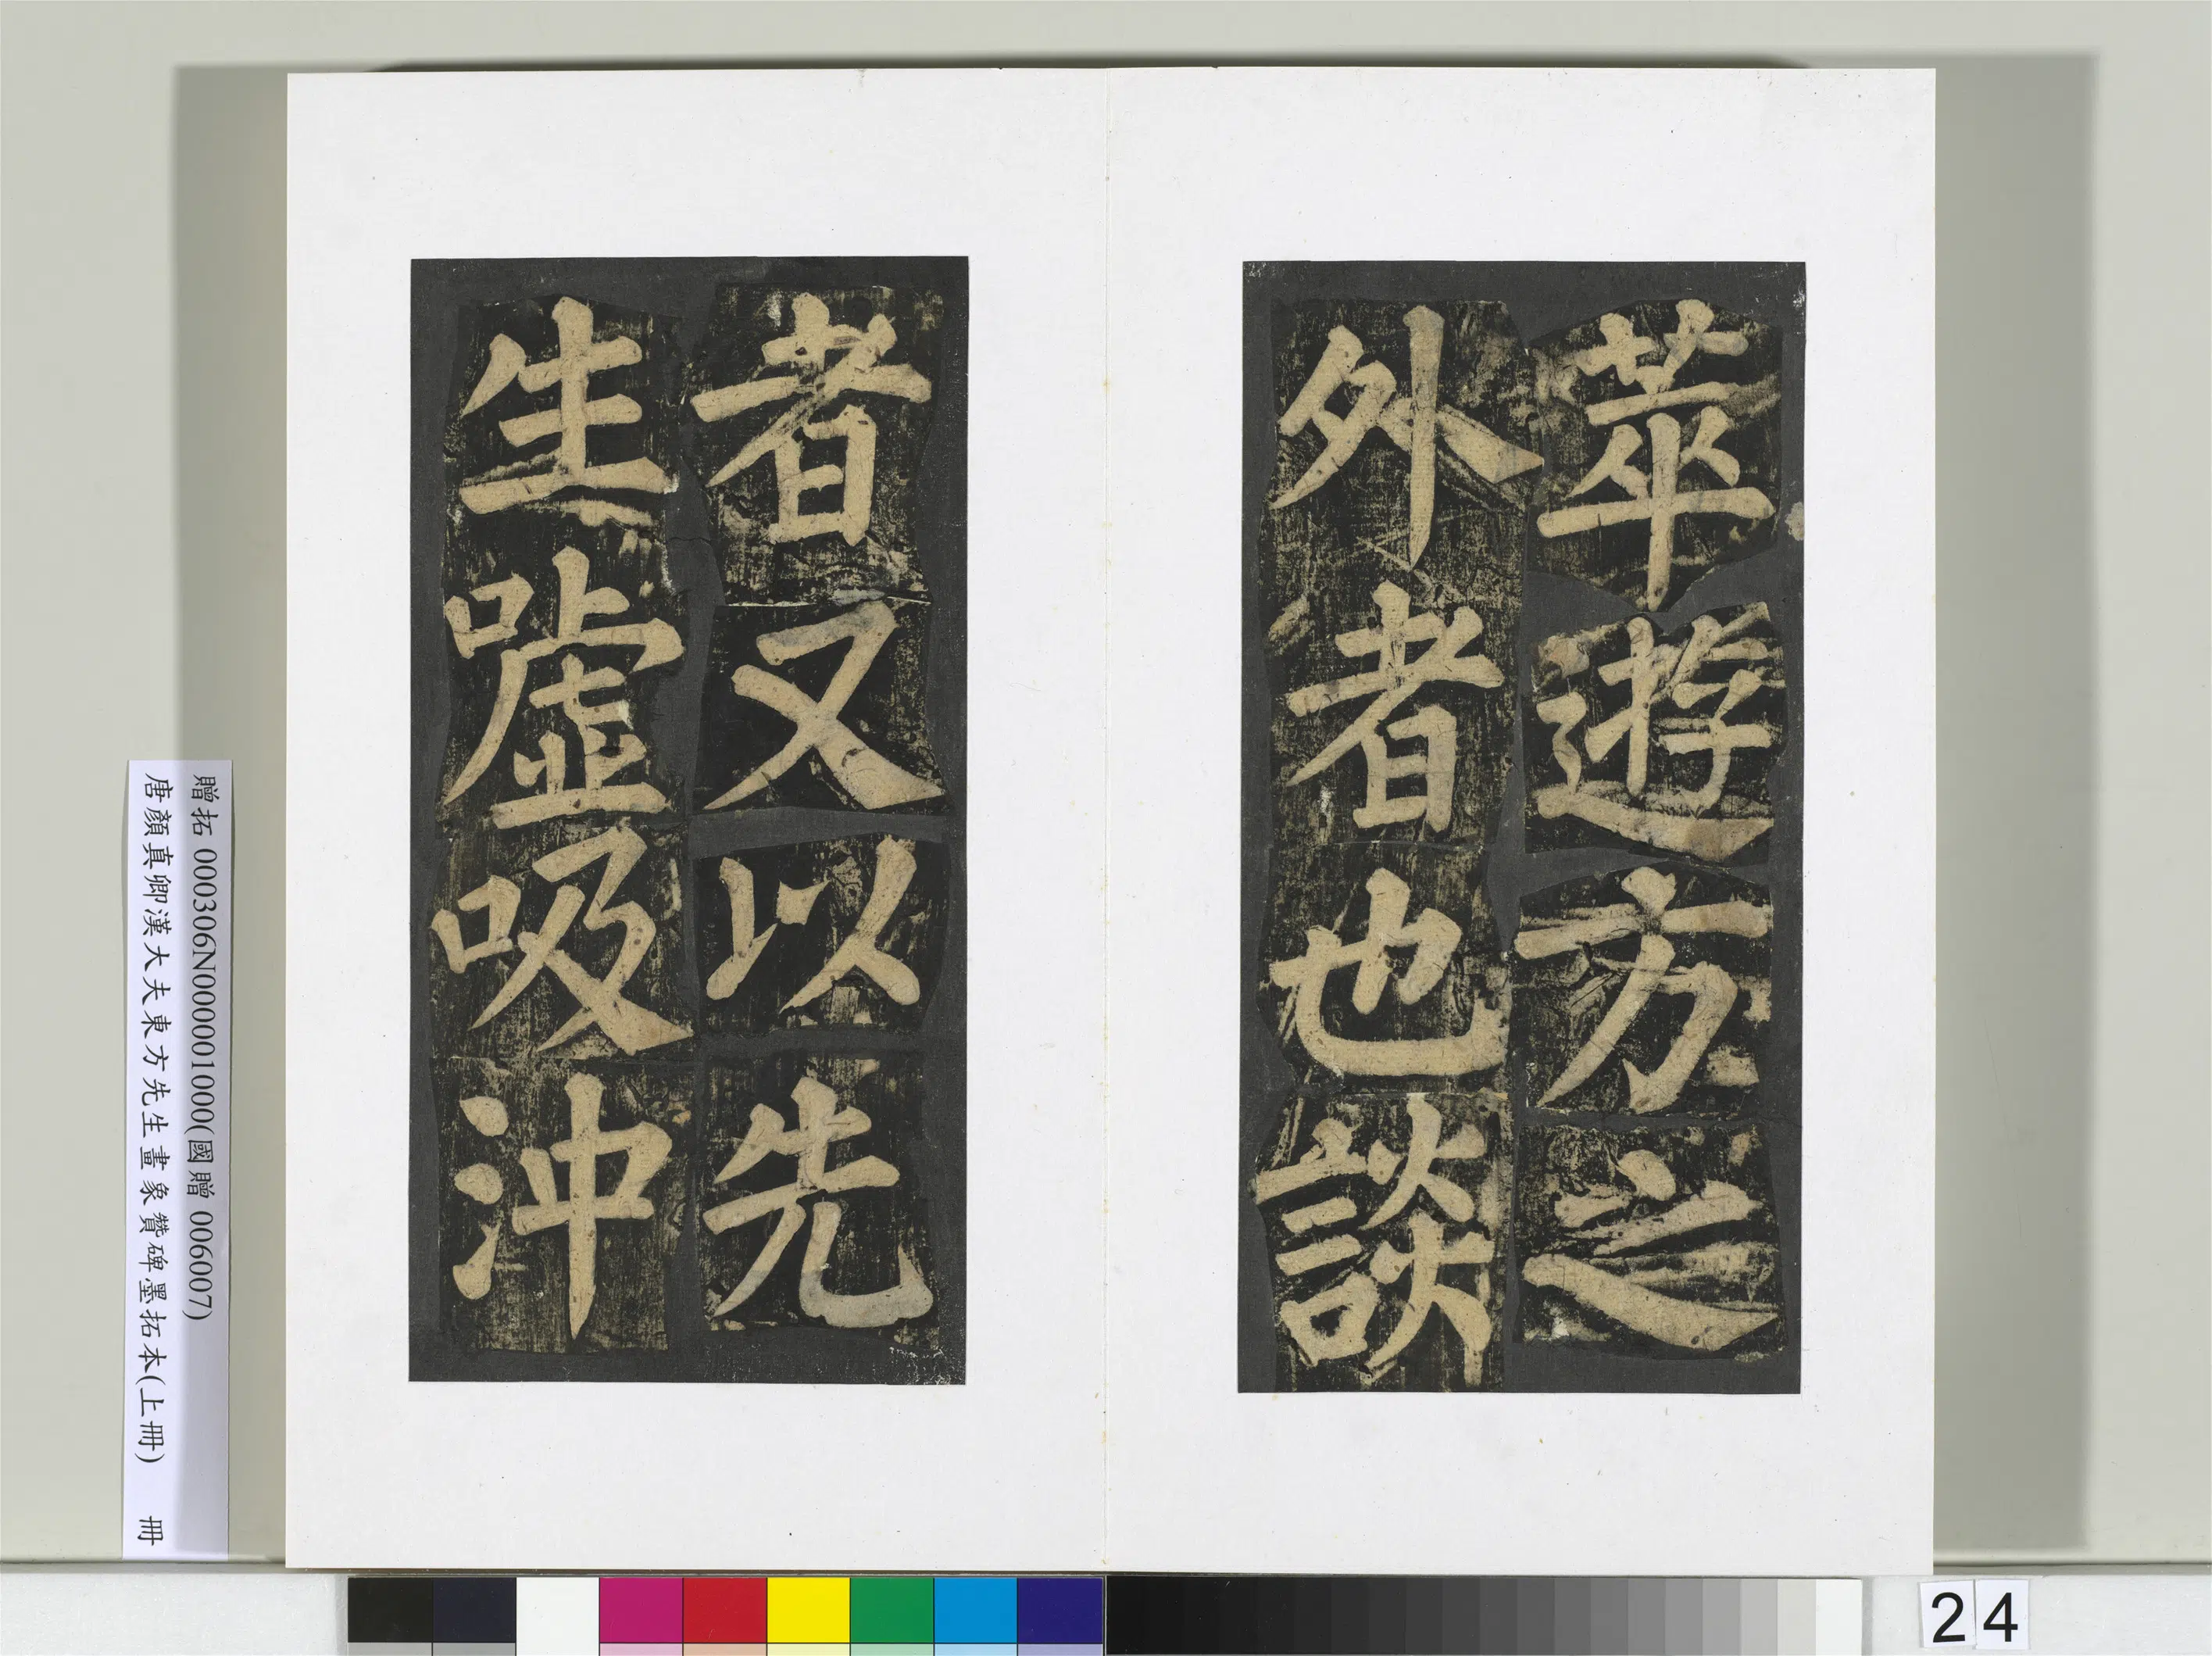 萃遊方之
外者也談
者又以先
生噓吸沖
贈拓 000306N000001000(國贈 006007)
唐顏真卿漢大夫東方先生畫象贊碑墨拓本(上冊) 冊
24